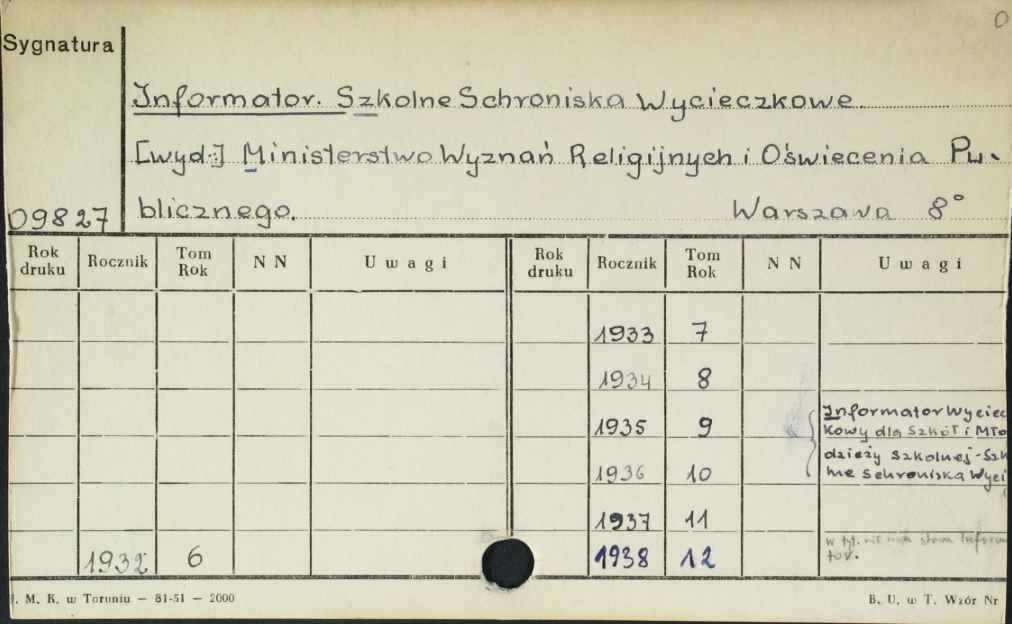 O
Sygnatura
Informator. Szkolne Schroniska Wycieczkowe.
[wyd:] Ministerstwo Wyznań Religijnych i Oświecenia Pu-
09827 blicznego. Warszawa 8°
Rok druku Rocznik Tom Rok N N Uwagi Rok druku Rocznik Tom Rok N N Uwagi
1933 7
1934 8
Informator Wyciec
1935 9 kowy dla Szkół i Mło
dzieży Szkolnej-Szk
1936 10 ne Schroniska Wyci
1937 11
w tyt. nie ma słowa Inform
1932 6 1938 12 tor.
. M. K. w Toruniu — 81-51 — 2000 B. U. w T. Wzór Nr